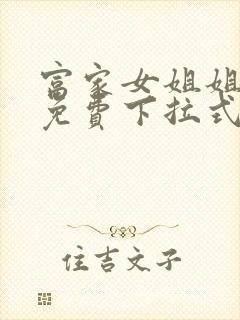 富家女姐姐
免費下拉式
住吉文子